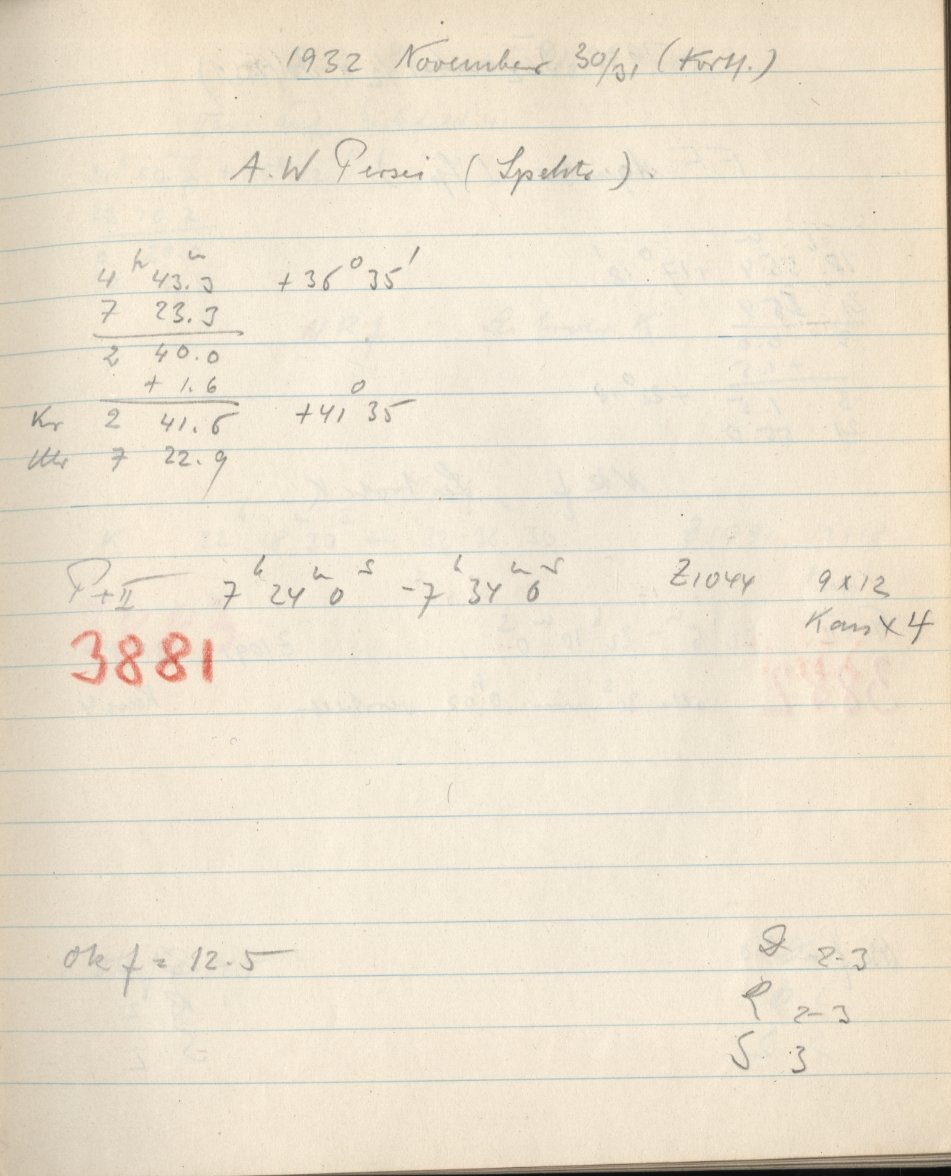 1932 November 30/31 (Forts.)
A.W Persei (Spektr.)
4h 43.3m +36° 35'
7 23.3
2 40.0
+ 1.6
Kr 2 41.6 +41° 35
Uhr 7 22.9
P+II 7h 24m 0s - 7h 34m 0s Z1044 9x12
Kass x 4
3881
Ok f = 12.5
2-3
R 2-3
S 3